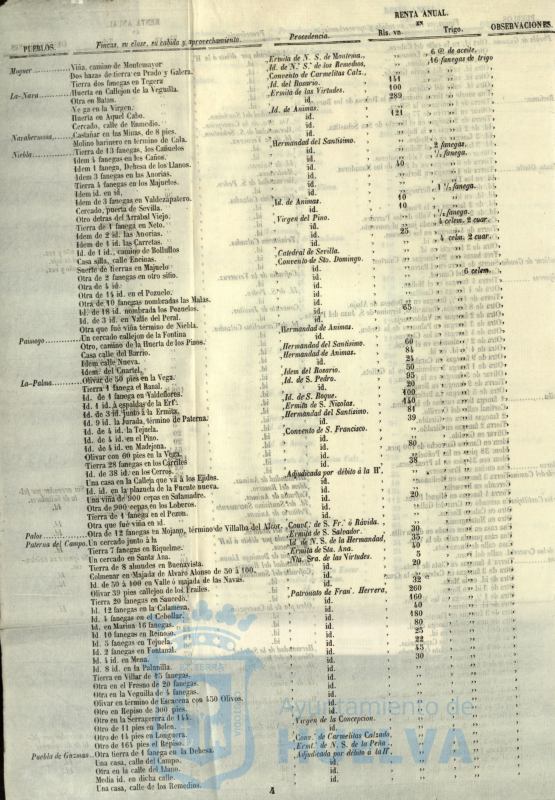 RENTA ANUAL.
EN
PUEBLOS. Fincas, su clase, su cabida y aprovechamiento. Procedencia. Rls. vn. Trigo. OBSERVACIONES
Moguer Viña, camino de Montemayor Ermita de N. S. de Montema., 6 @ de aceite.
Dos hazas de tierra en Prado y Galera. Id. de N.ª S.ª de los Remedios, 16 fanegas de trigo
Tierra dos fanegas en Tegera Convento de Carmelitas Calz.,
La-Nava Huerta en Callejon de la Veguilla. Id. del Rosario. 151
Otra en Batan. Ermita de las Virtudes. 100
Ne ga en la Virgen. id. 289
Huerta en Aquel Cabo. Id. de Animas.
Cercado, calle de Enmedio. id. 121
Navahermosa Castañar en las Minas, de 8 pies. id.
Molino harinero en término de Cala. id.
Niebla Tierra de 13 fanegas, los Cañuelos Hermandad del Santísimo. 2 fanegas.
Idem 4 fanegas en los Caños. id. fanega.
Idem 1 fanega, Dehesa de los Llanos. id. 40
Idem 3 fanegas en las Anorias. id.
Tierra 4 fanegas en los Majuelos. id.
Idem id. en id. id. fanega.
Idem de 3 fanegas en Valdezapatero. id. 40
Cercado, puerta de Sevilla. Id. de Animas. 10
Otro detras del Arrabal Viejo. id. fanega.
Tierra de 1 fanega en Neto. Virgen del Pino. 4 celem. 2 cuar.
Idem de 2 id. las Anorias. id. 25
Idem de 4 id. las Carretas. id. 4 celm. 2 cuar.
Id. de 1 id., camino de Bollullos id.
Casa silla, calle Encinas. Catedral de Sevilla.
Suerte de tierras en Majuelo Convento de Sto. Domingo.
Otra de 2 fanegas en otro sitio. id. 6 celem
Otra de 4 id. id.
Otra de 14 id. en el Pozuelo. id.
Otra de 10 fanegas nombradas las Malas. id.
Id. de 18 id. nombrada los Pozuelos. id. 65
Id. de 3 id. en Valle del Peral. id.
Otra que fué viña término de Niebla. id.
Paimogo Un cercado callejon de la Fontina Hermandad de Animas.
Otro, camino de la Huerta de los Pinos. id.
Casa calle del Barrio. Hermandad del Santísimo. 60
Idem calle Nueva. Hermandad de Animas. 84
Idem del Cuartel. id. 24
La-Palma Olivar de 50 pies en la Vega. Idem del Rosario. 50
Tierra 1 fanega el Banal. Id. de S. Pedro. 95
Id. de 1 fanega en Valdeflores. id. 20
Id. 1 id. á espaldas de la Erª. Id. de S. Roque. 100
Id. de 3 id. junto á la Ermita. Ermita de S. Nicolas. 440
Id. 9 id. la Jurada, término de Paterna. Hermandad del Santísimo. 81
Id. de 4 id. la Tejuela. id. 39
Id. de 4 id. en el Pino. Convento de S. Francisco.
Id. de 4 id. en Madejona. id.
Olivar con 60 pies en la Vega. id. 80
Tierra 28 fanegas en los Carriles id.
Id. de 38 id. en los Cerros. id. 38
Una casa en la Calleja que vá á los Ejidos. Adjudicada por débito á la Hª.
Id. id. en la plazuela de la Fuente nueva. id.
Una viña de 900 cepas en Salamadre. id. 20
Otra de 900 cepas en los Loberos. id.
Tierra de 1 fanega en el Pozon. id.
Otra que fué viña en id. id.
Palos Otra de 12 fanegas en Mojano, término de Villalba del Alcor. Convº. de S. Frº. ó Rávida.
Paterna del Campo. Un cercado junto á la Ermita de S. Salvador. 30
Tierra 7 fanegas en Riquelme. Id. de N. S. de la Hermandad, 35
Un cercado en Santa Ana. Ermita de Sta. Ana. 40
Tierra de 8 almudes en Buenavista. Ntra. Sra. de las Virtudes. 5
Colmenar en Majada de Alvaro Alonso de 50 á 100. id. 20
Id. de 50 á 100 en Valle ó majada de las Navas. id.
Olivar 39 pies callejon de los Frailes. id. 32
Tierra 20 fanegas en Saucedo. Patronato de Franº. Herrera, 260
Id. 12 fanegas en la Calameza. id. 160
Id. 4 fanegas en el Cebollar. id. 40
Id. en Marina 16 fanegas. id. 480
Id. 10 fanegas en Reinoso. id. 80
Id. 3 fanegas en Tejuela. id. 25
Id. 2 fanegas en Fontanal. id. 22
Id. 4 id. en Mena. id. 45
Id. 8 id. en la Palmilla. id. 30
Tierra en Villar de 15 fanegas. id.
Otra en el Fresno de 20 fanegas. id.
Otra en la Veguilla de 4 fanegas. id.
Olivar en término de Escacena con 450 Olivos. id.
Otro en Repiso de 300 pies. id.
Otro en la Serragerera de 144. id.
Otro de 11 pies en Bolen. Virgen de la Concepcion.
Otro de 14 pies en Longuera. id.
Otro de 164 pies el Repiso. Convº. de Carmelitas Calzado.
Puebla de Guzman Otra tierra de 1 fanega en la Dehesa. Ermtª de N. S. de la Peña.
Una casa, calle del Campo. Adjudicada por débito á la Hª.
Otra en la calle del Llano. id.
Media id. en dicha calle. id.
Una casa, calle de los Remedios. id.
4
Ayuntamiento de
HUELVA